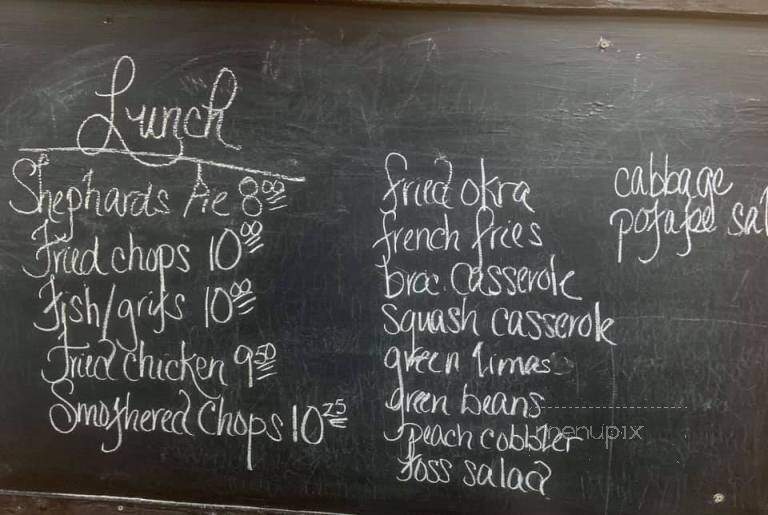 Lunch
Shephards Pie 8.00
Fried chops 10.00
Fish/grits 10.00
Fried chicken 9.50
Smothered Chops 10.25
fried okra
french fries
broc. casserole
squash casserole
green limas
green beans
peach cobbler
toss salad
cabbage
potatoe sal
menupix